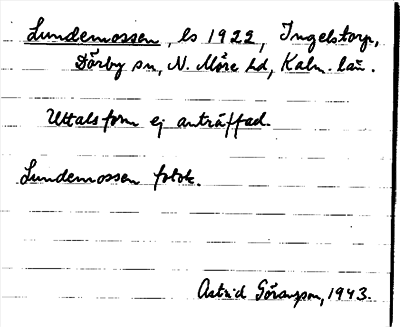 Lundemossen, ls 1922, Ingelstorp,
Dörby sn, N. Möre hd, Kalm. län.
Uttalsform ej anträffad.
Lundemossen folok.
Astrid Göransson, 1943.